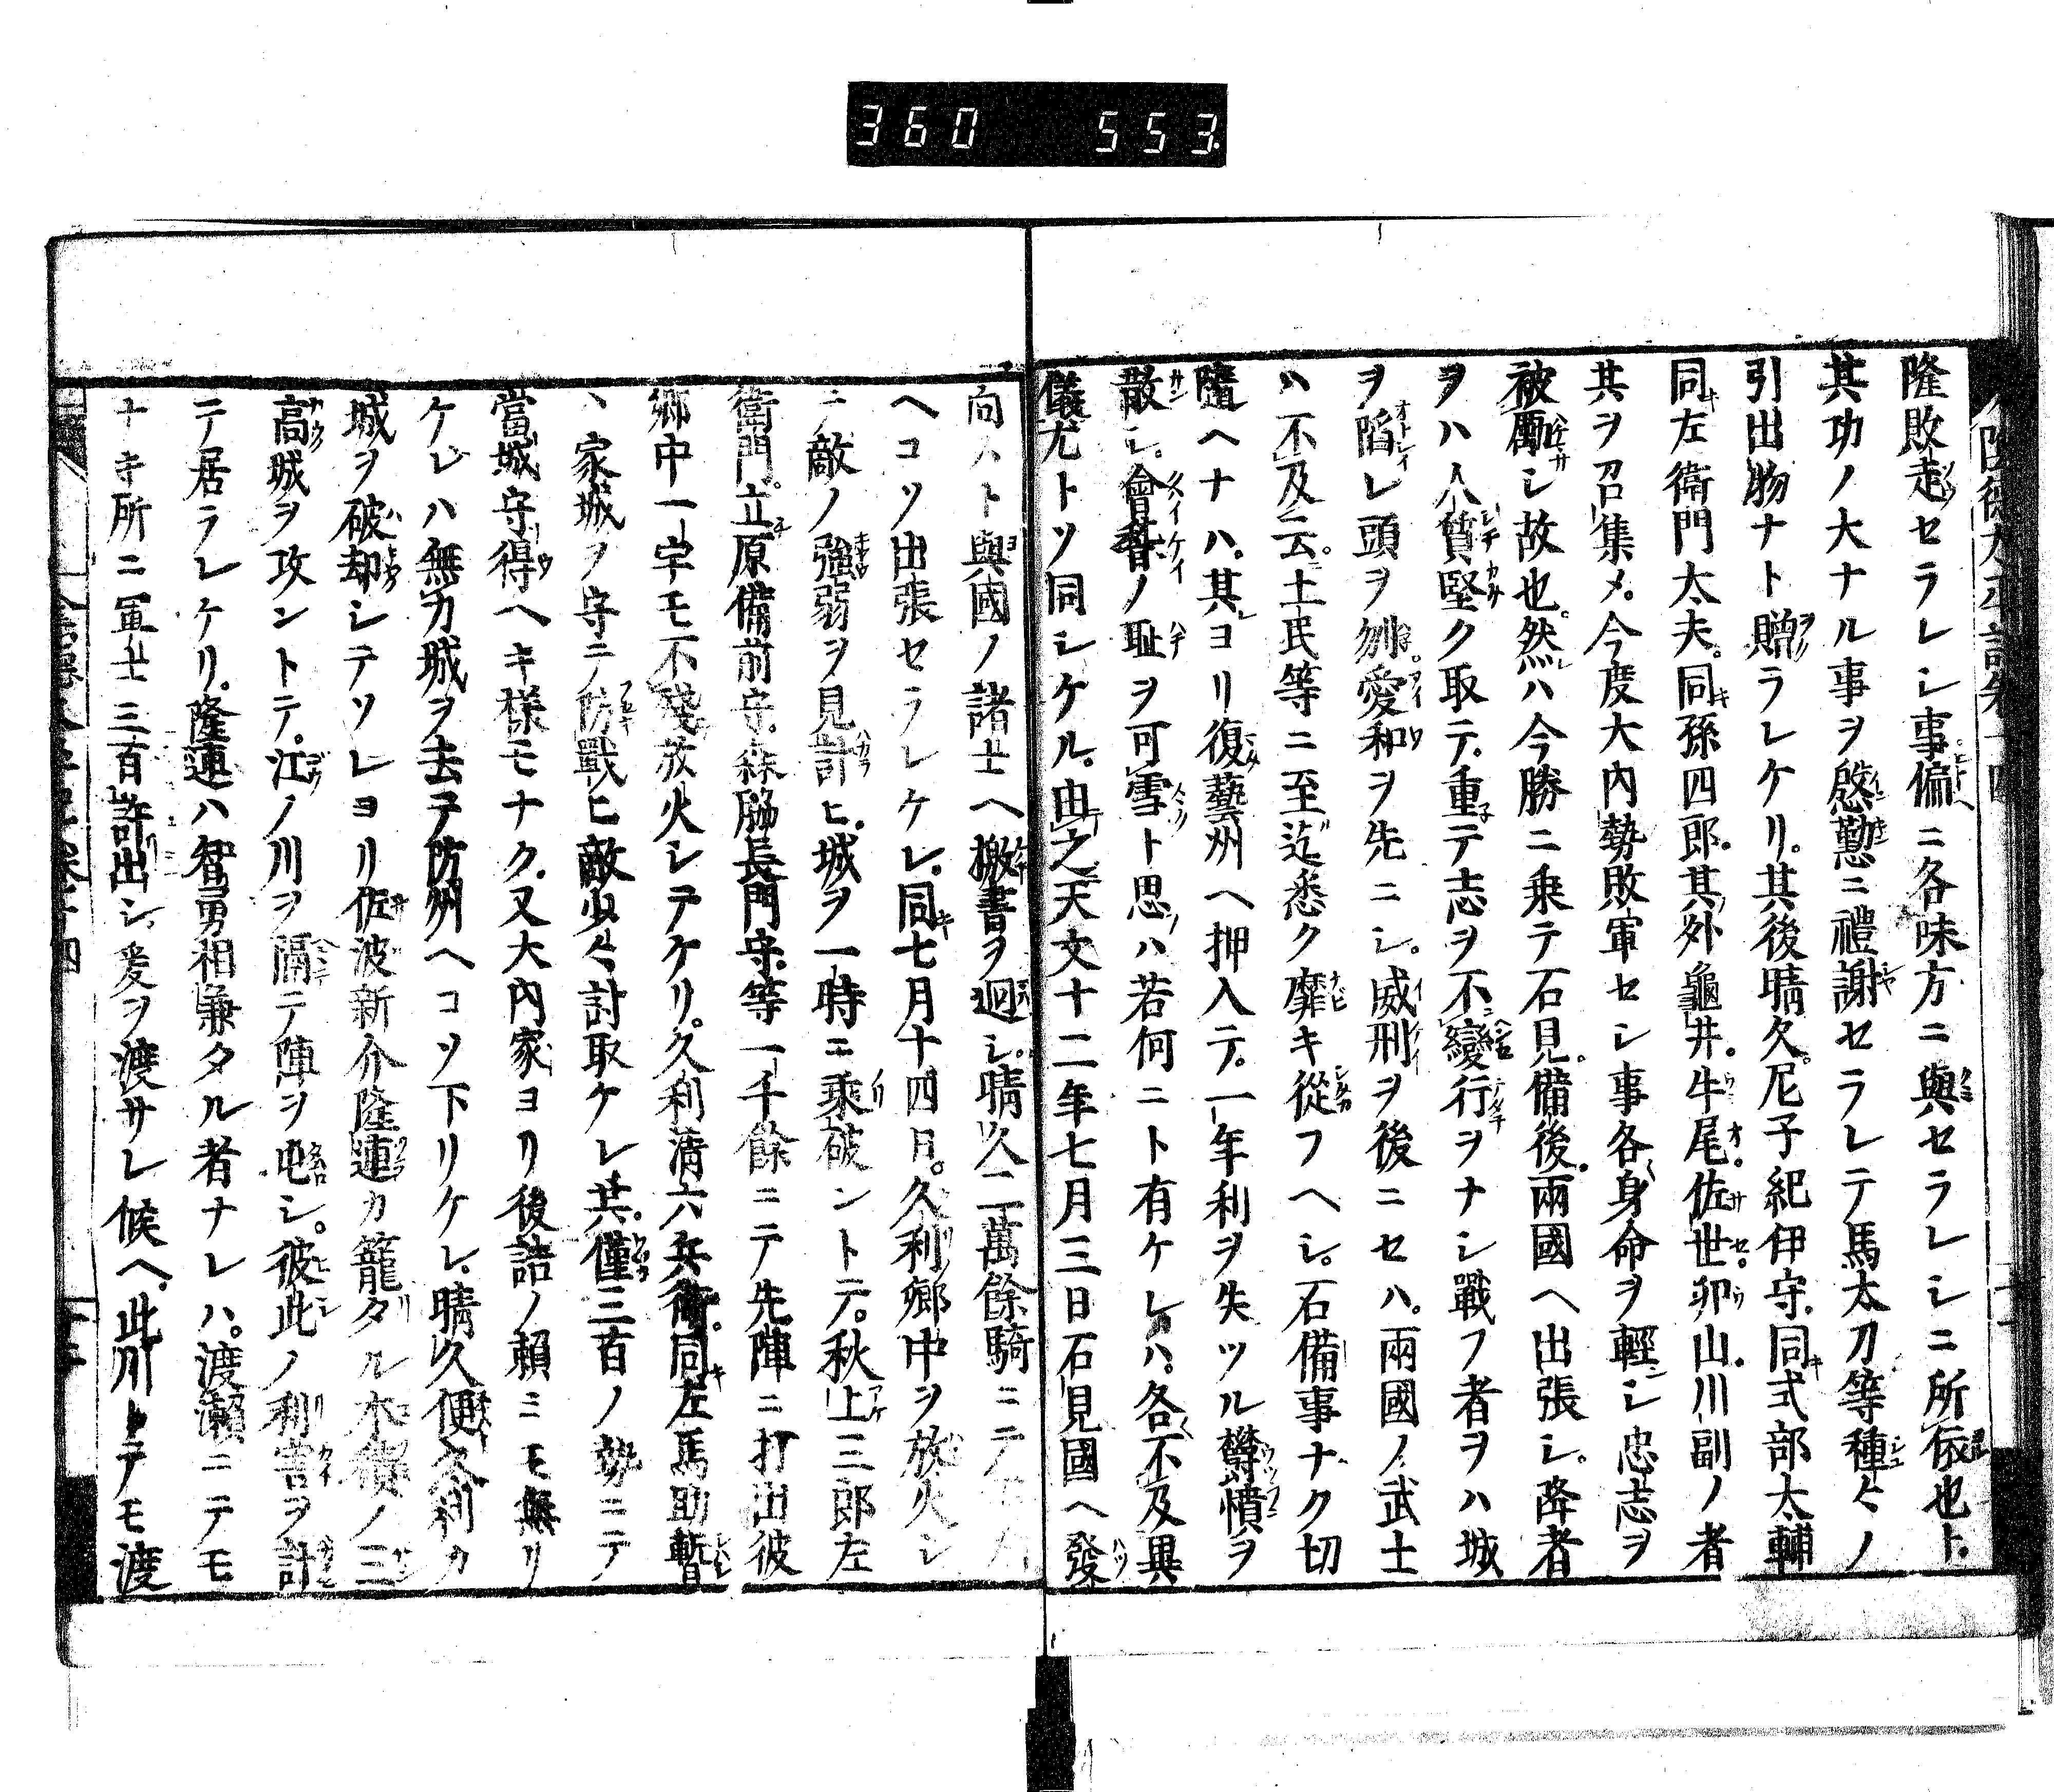 360 553
隆敗走セラレシ事偏ニ各味方ニ與セラレシニ所依也ト
其功ノ大ナル事ヲ慇懃ニ禮謝セラレテ馬太刀等種々ノ
引出物ナト贈ラレケリ。其後晴久。尼子紀伊守。同式部太輔
同左衛門太夫。同孫四郎。其外龜井。牛尾。佐世。卯山。川副ノ者
其ヲ召集メ。今度大内勢敗軍セシ事各身命ヲ輕シ忠志ヲ
被勵シ故也。然ハ今勝ニ乗テ石見。備後。兩國ヘ出張シ。降者
ヲハ人質堅ク取テ。重テ志ヲ不變行ヲナシ戰フ者ヲハ城
ヲ陷レ頭ヲ刎。愛和ヲ先ニシ。威刑ヲ後ニセハ。兩國ノ武士
ハ不及云。土民等ニ至迄悉ク靡キ從フヘシ。石備事ナク切
隨ヘナハ。其ヨリ復藝州ヘ押入テ。一年利ヲ失ツル欝憤ヲ
散シ。會稽ノ耻ヲ可雪ト思ハ若何ニト有ケレハ。各不及異
儀尤トソ同シケル。由之天文十二年七月三日石見國ヘ發
向ストト與國ノ諸士ヘ檄書ヲ廻シ。晴久二萬餘騎ニテ
ヘコソ出張セラレケレ。同七月十四日。久利郷中ヲ放火シ
テ敵ノ強弱ヲ見計ヒ。城ヲ一時ニ乘破ントテ。秋上三郎左
衛門。立原備前守。森脇長門守。等一千餘ニテ先陣ニ打出彼
郷中一宇モ不殘放火シテケリ。久利清六兵衛。同左馬助暫
ハ家城ヲ守ニ防戰ヒ敵少々討取ケレ共。僅三百ノ勢ニテ
當城守得ヘキ樣モナク。又大内家ヨリ後詰ノ頼ミモ無リ
ケレハ無力城ヲ去テ防州ヘコソ下リケレ。晴久便久利カ
城ヲ破却シテソレヨリ佐波新介隆連カ籠タル木積ノ三
高城ヲ攻ントテ。江ノ川ヲ隔テ陣ヲ屯シ。彼此ノ利害ヲ計
テ居ラレケリ。隆連ハ智勇相兼タル者ナレハ。渡瀬ニテモ
ナキ所ニ軍士三百許出シ。爰ヲ渡サレ候ヘ。此川トテモ渡